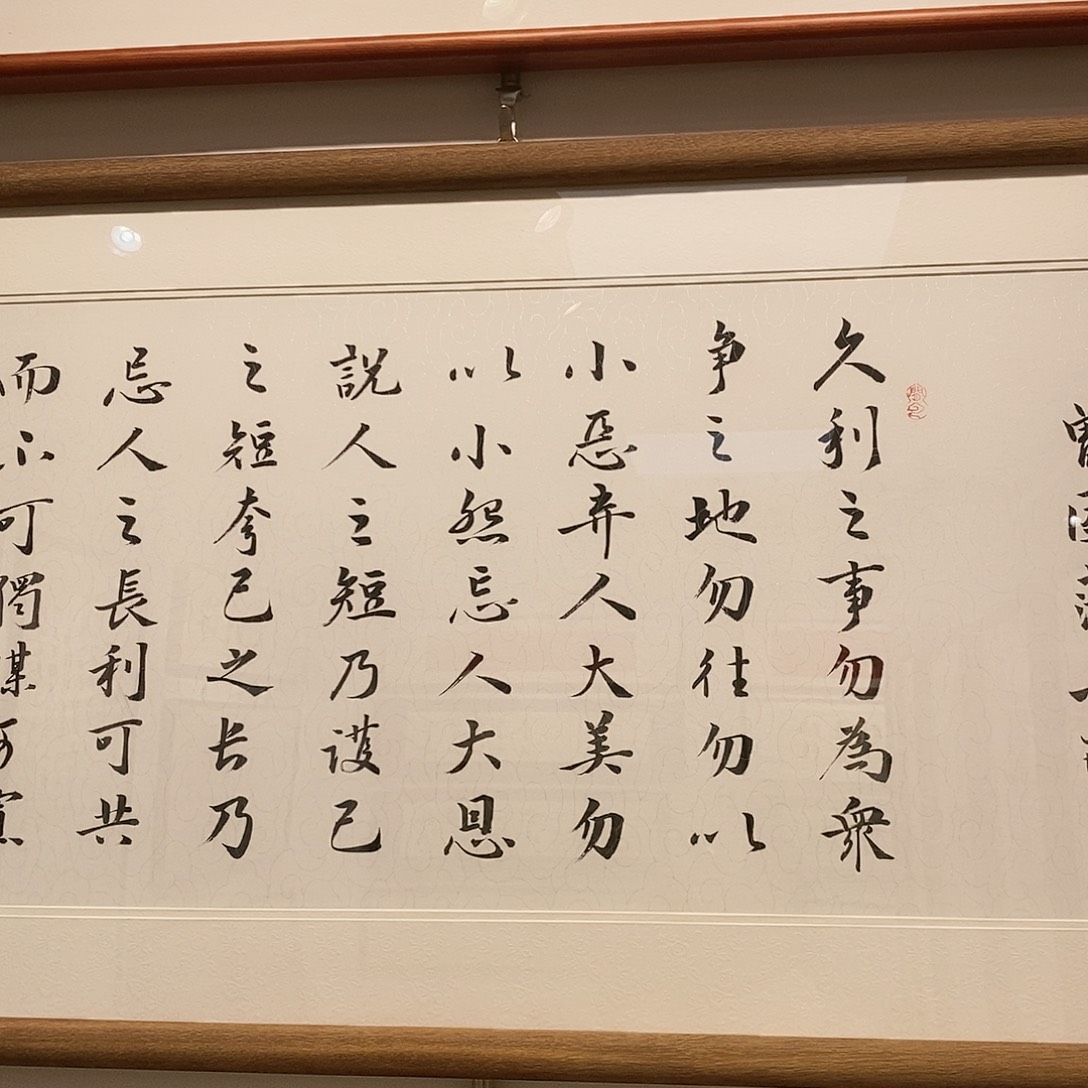 久利之事勿為衆
争之地勿往勿以
小惡弃人大美勿
以小怨忘人大恩
説人之短乃護己
之短夸己之长乃
忌人之長利可共
而不可獨謀可寡